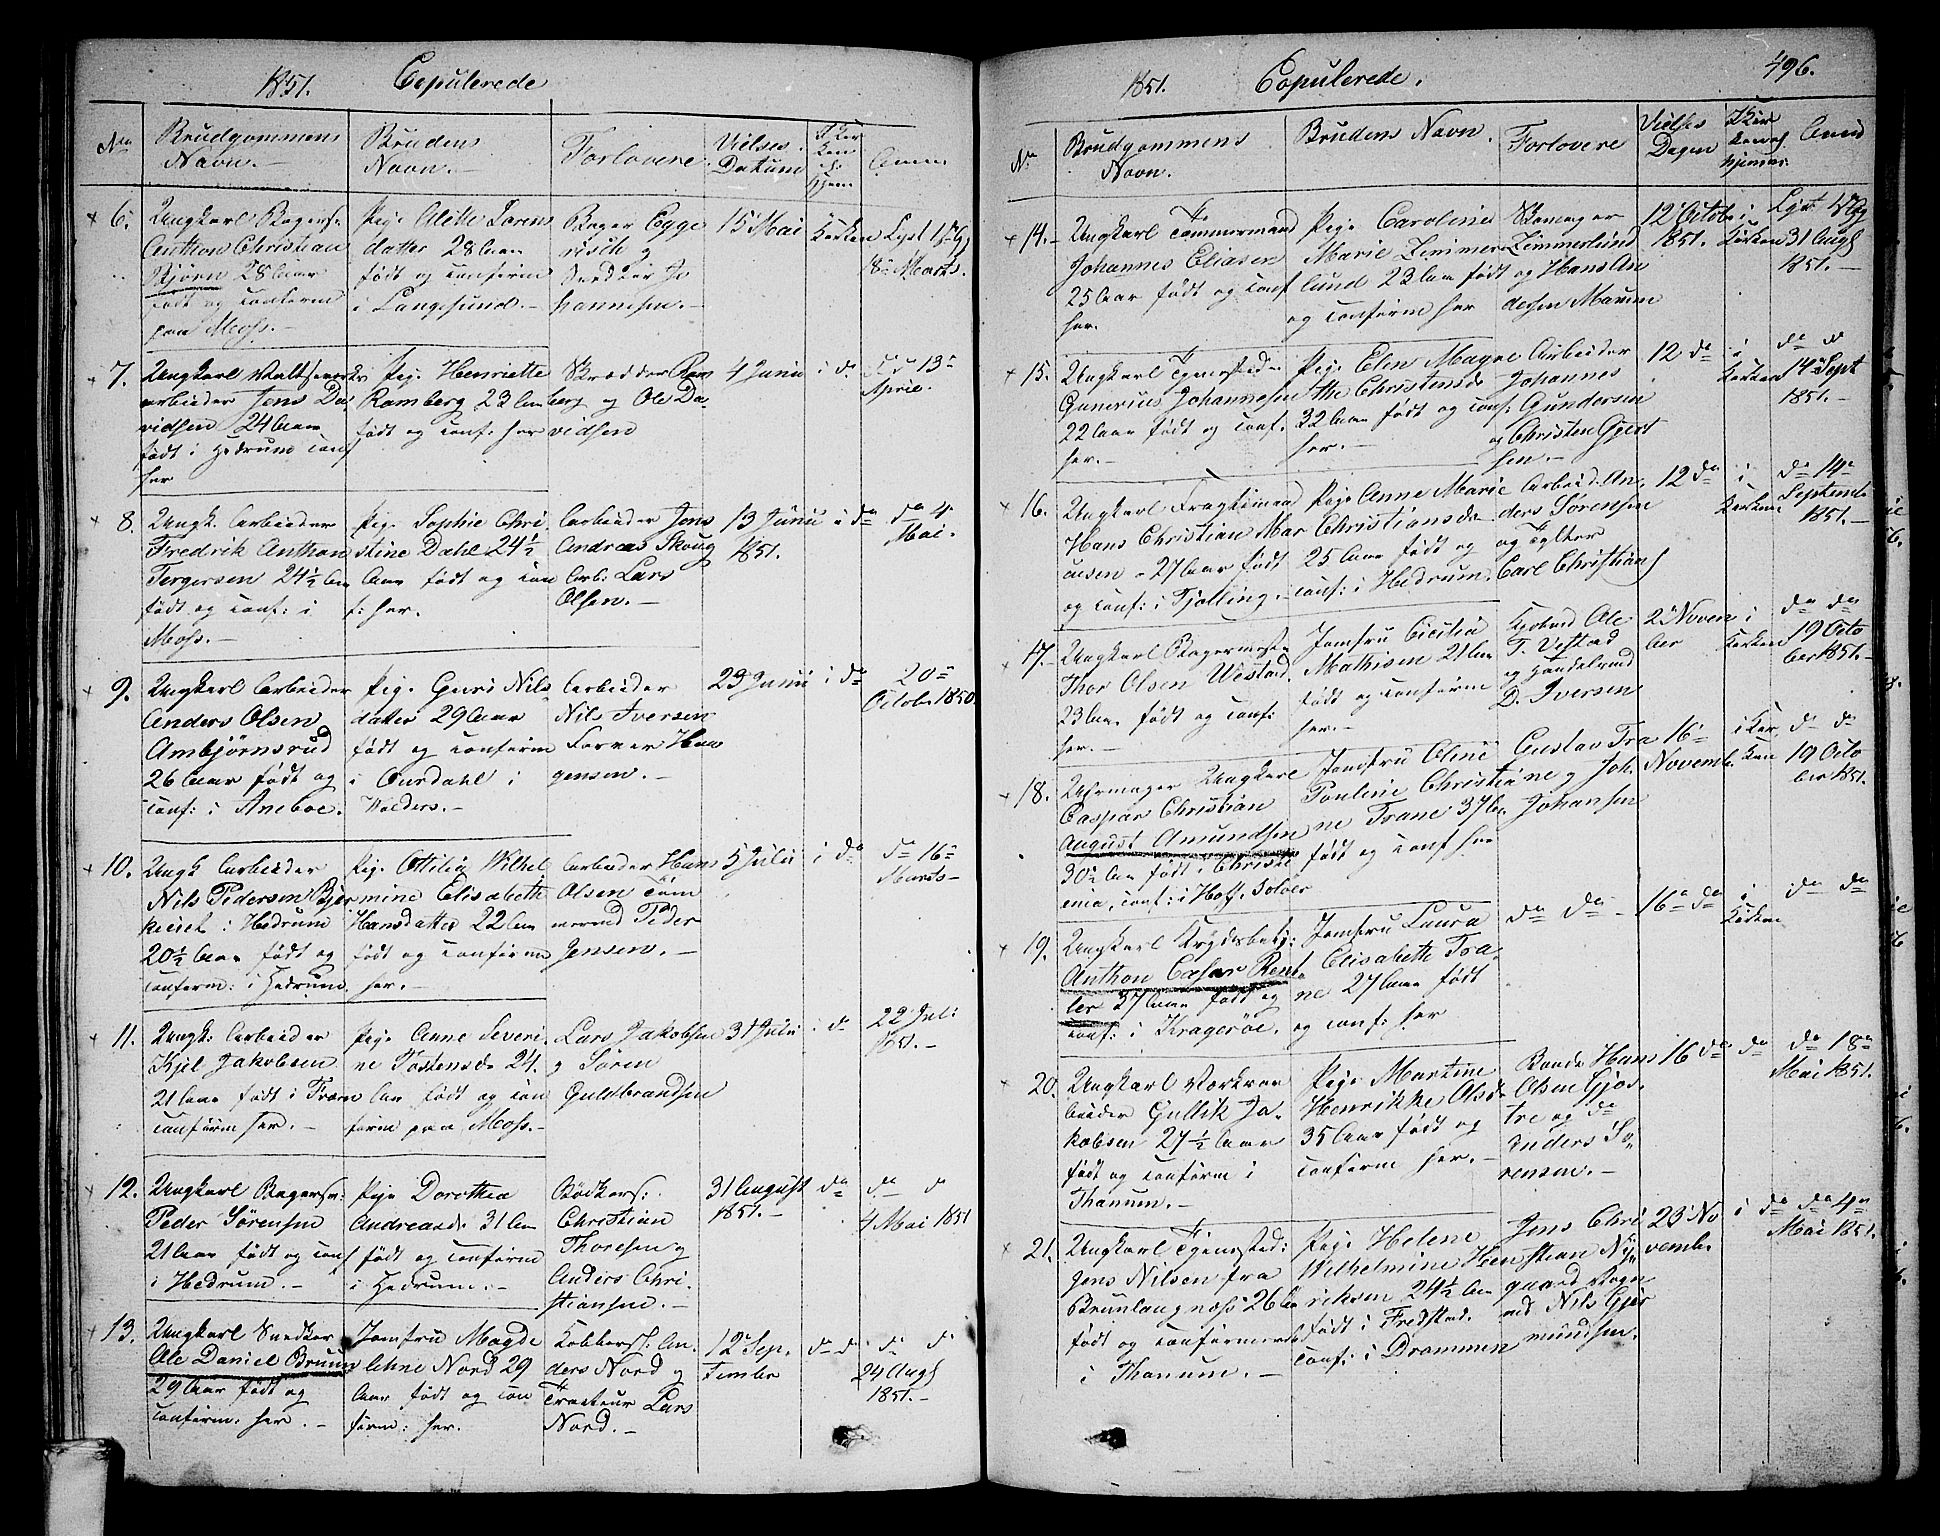 1851. Copulerede
No
Brudgommens Navn.
Brudens Navn.
Forlovere
Vielses Datum
Kirken el. Hjem
Anm.
6.
Ungkarl Bagers.
Anthon Christian
Bjørn 28 Aar
født og conferm
paa Moss.
Pige Alethe Sørens
datter 28 Aar
født og conferm
i Langesund.
Bager Egge
risch og
Snedker Jo
hannesen.
15 Mai
Kirken
Lyst 1ste G
18 Marts.
7.
Ungkarl Valseverks
arbeider Jens Da
vidsen 24 Aar
født i Hedrum conf
her
Pige Henriette
Ramberg 23 Aar
født og conf: her
Skrædder Ram
berg og Ole Da-
vidsen
4 Junii
i do
do 13
April.
8.
Ungk. Arbeider
Fredrik Anthon
Tergersen 24½ Aar
født og conf: i
Moss.
Pige Sophie Chri
stine Dahl 24½
Aar født og con
f: her.
Arbeider Jens
Andreas Skoug
Arb: Lars
Olsen.
13 Junii
1851.
i do
do 4
Mai.
9.
Ungkarl Arbeider
Anders Olsen
Ambjørnsrud
26 Aar født og
conf: i Aneboe.
Pige Guri Nils
datter 29 Aar
født og conferm
i Ourdahl i
Valders.
Arbeider
Nils Iversen
Farver Haa
gensen.
29 Junii
i do
20
Octob 1850
10.
Ungk Arbeider
Nils Pedersen Bjer
keiet i Hedrum
20½ Aar født og
conferm: i Hedrum.
Pige Ottilia Wilhel
mine Elisabeth
Hansdatter 22 Aar
født og conferm
her.
Arbeider Hans
Olsen Tøm
mermd Peder
Jensen.
5 Julii
i do
do 16
Marts
11.
Ungk. Arbeider
Kjel Jakobsen
21 Aar født i From
conferm her.
Pige Anne Severi
ne Tostensd 24.
Aar født og con
ferm paa Moss.
Lars Jakobsen
og Søren
Guldbrandsen
31 Julii
i do
22 Juli
1851.
12.
Ungkarl Bagers:
Peder Sørensen
21 Aar født og conf
i Hedrum.
Pige Dorothea
Andreasd 31 Aar
født og conferm
i Hedrum.
Bødkers:
Christian
Thoresen og
Anders Chri-
stiansen.
31 August
1851.
do
do do
4 Mai 1851
13.
Ungkarl Snedker
Ole Daniel Bruun
29 Aar født og
conferm. her.
Jomfru Magde
lehne Nord 29
Aar født og con
ferm: her.
Kobbersl: An-
ders Nord og
Tracteur Lars
Nord.
12 Sep.
tember
do do
do do
24 Aug
1851.
1851. Copulerede.
496.
No
Brudgommens Navn.
Brudens Navn.
Forlovere
Vielses Dagen
Kirken el. hjemme
Anm
14.
Ungkarl Tømmermand
Johannes Eliasen
25 Aar født og conf
her.
Pige Caroline
Marie Zimmer
lund 23 Aar født
og conferm her
Skomager
Zimmerlund
og Hans An
dersen Maurm
12 Octob
1851.
i Kirken
Lyst
31 Aug
1851.
15.
Ungkarl Tjenested.
Gunerius Johannesen
22 Aar født og conf.
her.
Pige Elen Magre
the Christensd
32 Aar født og conf:
her.
Arbeider
Johannes
Gundersen
og Christen Gjert
sen.
12 do
i Kirken
do d
14 Sept
1851.
16.
Ungkarl Fragtemand
Hans Christian Mar
cusen 27 Aar født
og conf: i Tjølling.
Pige Anne Marie
Christiansd
25 Aar født og
conf: i Hedrum.
Arbeid. An
ders Sørensen
og Fylter
Carl Christians
12 do
i Kirken
do 14
Septemb
1851.
17.
Ungkarl Bagermest.
Thor Olsen Westad
23 Aar født og conf:
her.
Jomfru Cicilia
Mathisen 21 Aar
født og conferm
her.
Kjøbmd Ole
T. Vestad
og Handelsmd
D. Iversen
2 Novem
ber
i Kirken
do do
19 Octo
ber 1851.
18.
Uhrmager Ungkarl
Caspar Christian
August Amundsen
30½ Aar født i Christi
ania, conf: i Hoff. Soløer
Jomfru Oline
Pauline Christia
ne Trane 37 Aar
født og conf her
Gustav Tra
ne og Joh.
Johansen
16
Novemb.
i Kir
ken
do do
19 Octo
ber 1851.
19.
Ungkarl Krydsbetj:
Anthon Cæsar Rent
ler 37 Aar født og
conf: i Kragerøe.
Jomfru Laura
Elisabeth Tra-
ne 27 Aar født
og conf: her
do do
16 do
i Kirken
do do
20.
Ungkarl Værksar
beider Gullik Ja
kobsen 27½ Aar
født og conferm i
Thanum.
Pige Martine
Henrikke Olsd
35 Aar født og
conferm her.
Bonde Hans
Olsen Gjøs
tre og do
Anders Sø-
rensen.
16 do
do
do 18
Mai 1851.
21.
Ungkarl Tjenested:
Jens Nilsen fra
Brunlaugnæss 26 Aar
født og confermered
i Thanum.
Pige Helene
Wilhelmine Hen
riksen 24½ Aar
født i Fredstad.
conf: i Drammen
Jens Chri
stian Ny-
gaard Vogn
md Nils Gjer
mundsen.
23 No
vember
i do
do 4
Mai 1851.